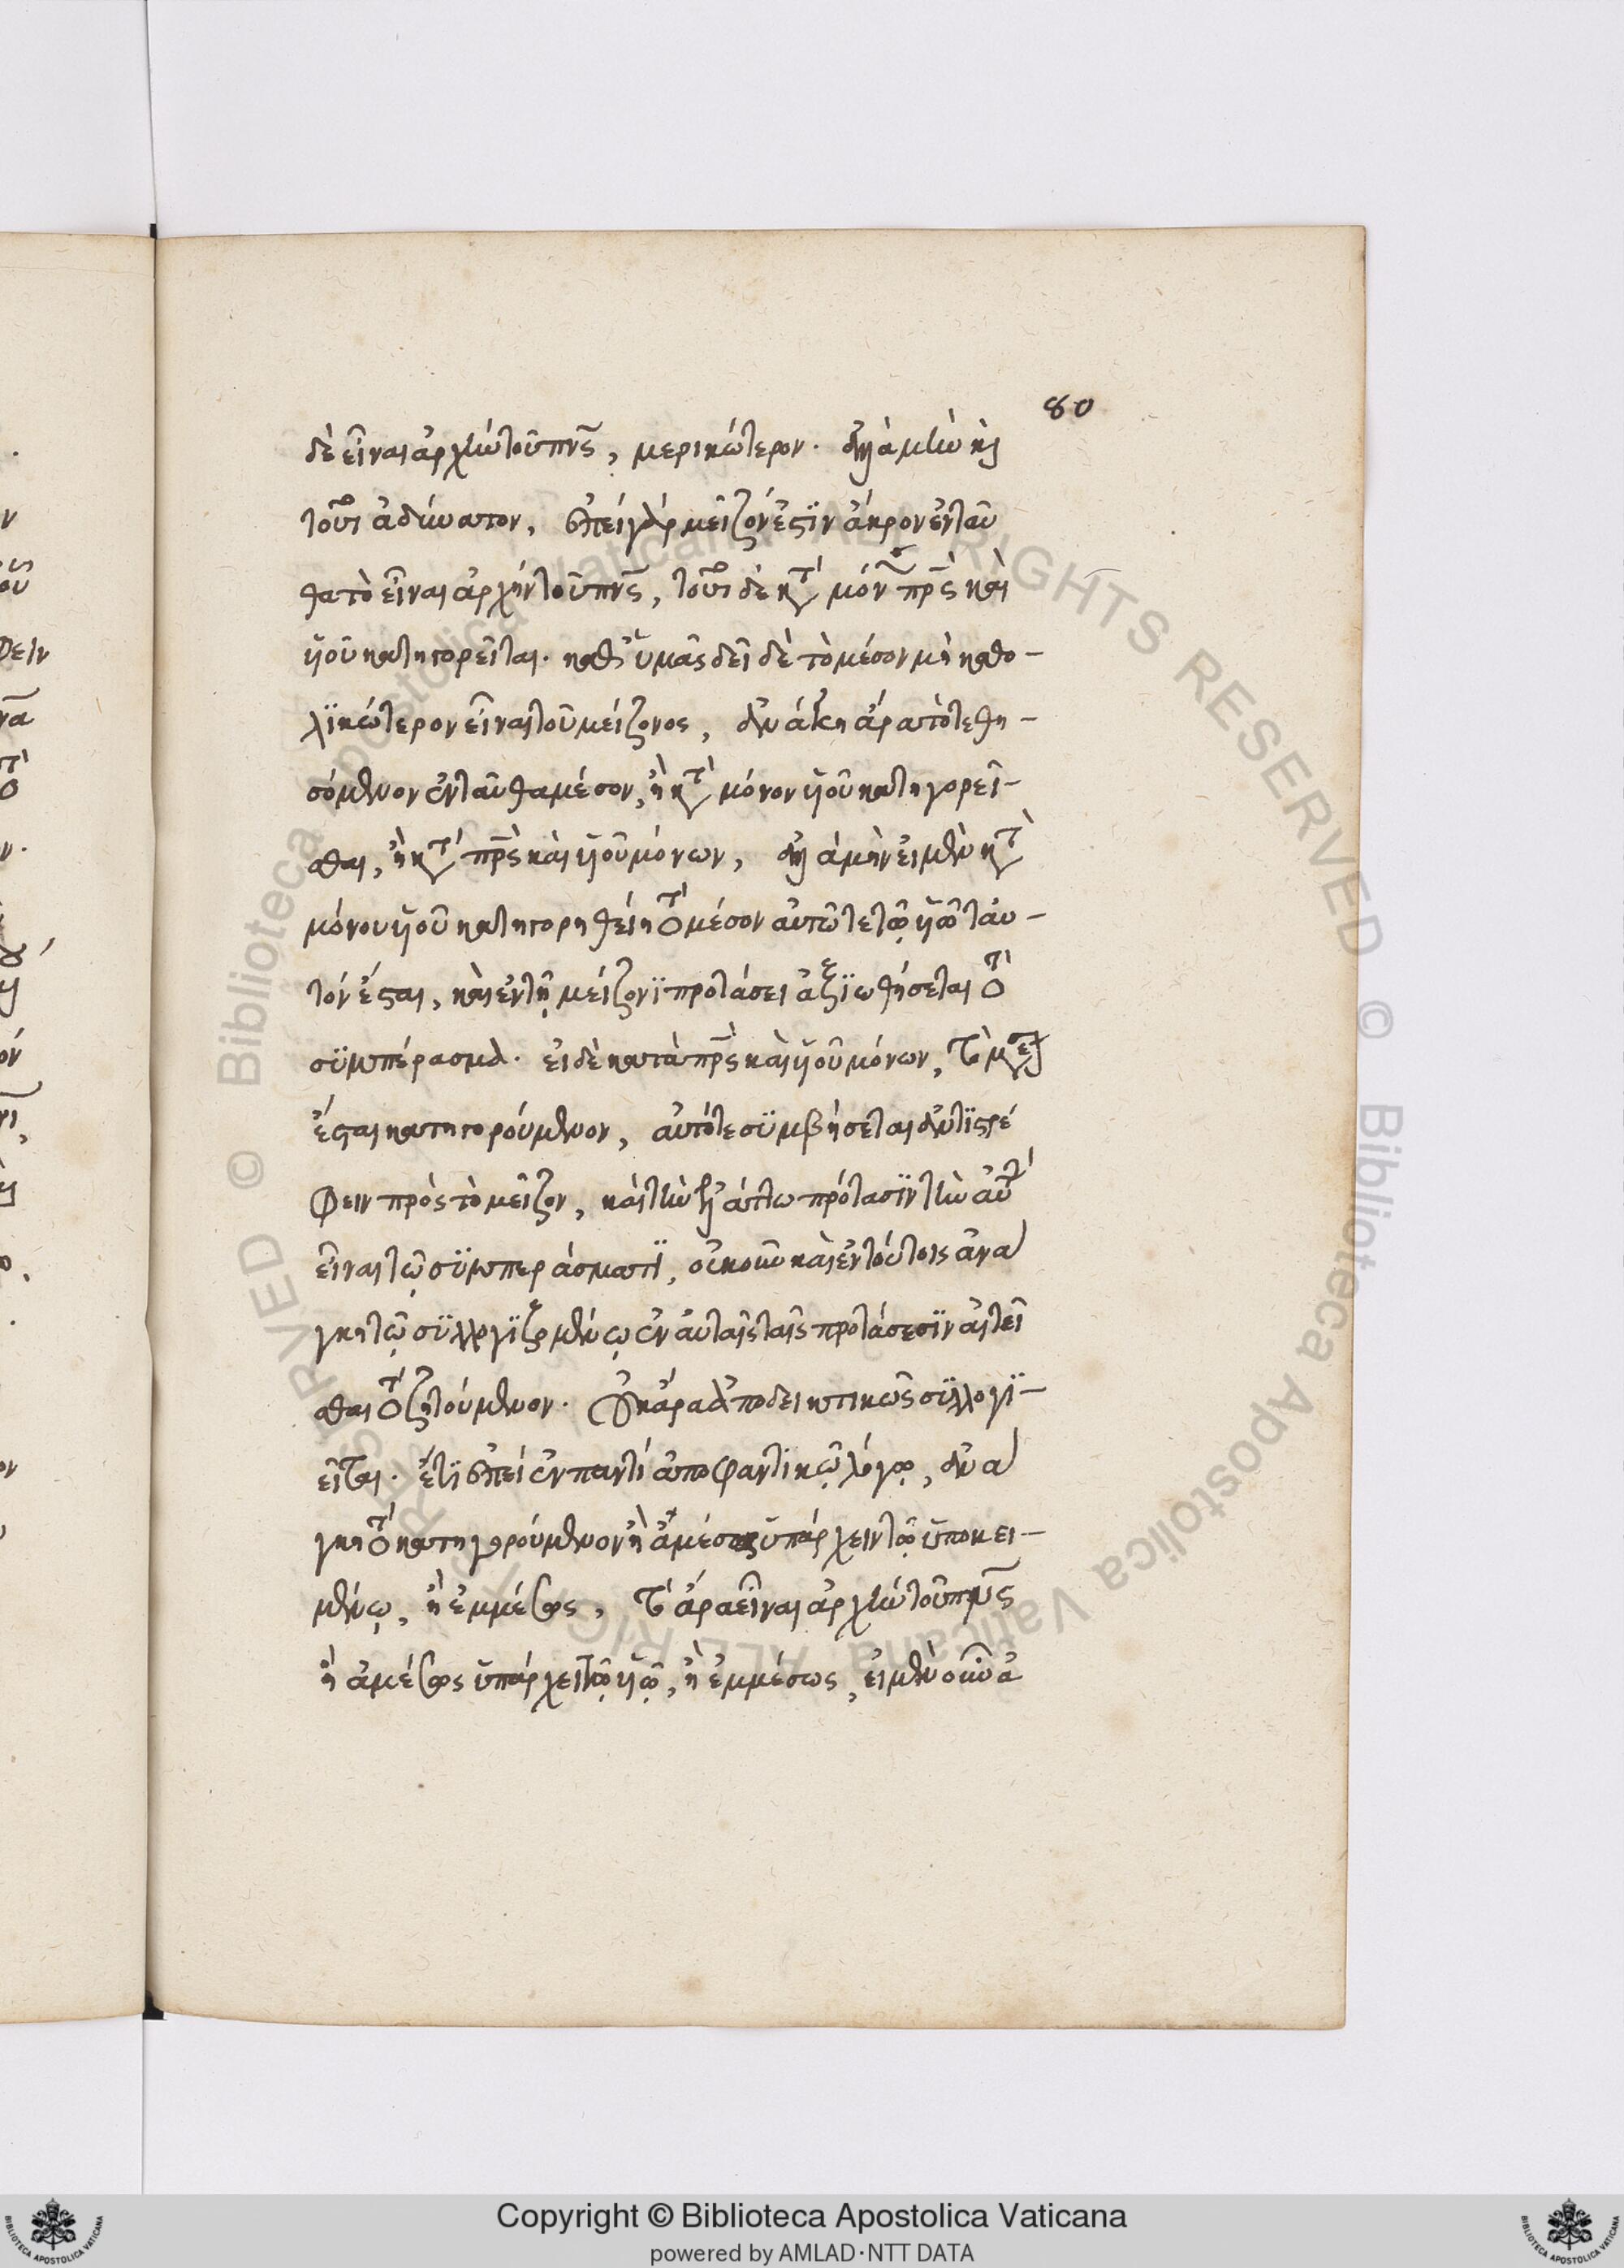 80
δὲ εἶναι ἀρχὴν τοῦ πνς, μερικώτερον. ἀλλὰ μὴν καὶ
τοῦτο ἀδύνατον, ἐπεὶ γὰρ μεῖζόν ἐστϊν ἄκρον ἐνταῦ
θα τὸ εἶναι ἀρχήν τοῦ πνς, τοῦτο δὲ κατὰ μόνου πρς καὶ
ϋοῦ κατηγορεῖται. καθ' ὑμᾶς δεῖ δὲ τὸ μέσον μὴ καθο-
λϊκώτερον εἶναι τοῦ μείζονος, ἀνάγκη ἄρα τὸ τεθη-
σόμενον ἐνταῦθα μέσον, ἢ κατὰ μόνου ϋοῦ κατηγορεῖ-
σθαι, ἢ κατὰ πρς καὶ ϋοῦ μόνων, ἀλλὰ μὴν εἰ μὲν κατὰ
μόνου ϋοῦ κατηγορηθείη τὸ μέσον αὐτῶ τε τῶ ϋῶ ταυ-
τόν ἔσται, καὶ ἐν τῆ μείζονϊ προτάσει ἀξϊωθήσεται τὸ
σϋμπέρασμα. εἰ δὲ κατὰ πρς καὶ ϋοῦ μόνων, τὸ μέσον
ἔσται κατηγορούμενον, αὐτό τε σϋμβήσεται ἀντϊστρέ
φειν πρὸς τὸ μεῖζον, καὶ τὴν ἐλάττω πρότασϊν τὴν αὐτὴν
εἶναι τῶ σϋμπεράσματϊ, οὐκοῦν καὶ ἐν τούτοις ἀνά
γκη τῶ σϋλλογϊζομένῳ ἐν αὐταῖς ταῖς προτάσεσϊν αἰτεῖ
σθαι τὸ ζητούμενον. οὐκ ἄρα ἀποδεικτικῶς σϋλλογϊ-
εῖται. ἔτϊ ἐπεὶ ἐν παντὶ ἀποφαντϊκῶ λόγῳ, ἀνά
γκη τὸ κατηγορούμενον ἢ ἀμέσως ὑπάρχειν τῶ ὑποκει-
μένῳ, ἢ ἐμμέσως, τὸ ἄρα εἶναι ἀρχὴν τοῦ πνς
ἢ ἀμέσως ὑπάρχει τῶ ϋῶ, ἢ ἐμμέσως, εἰ μὲν οὖν ἀ
Copyright © Biblioteca Apostolica Vaticana
powered by AMLAD·NTT DATA